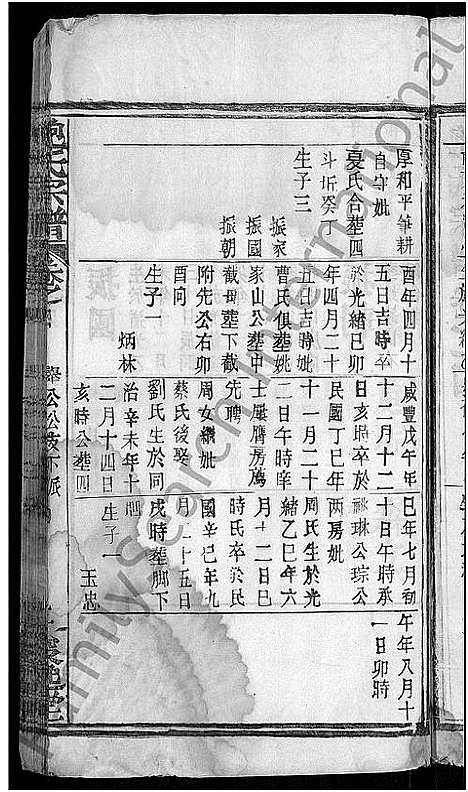 厚和平筆耕
自守妣
夏氏合塟四
斗坵癸丁
生子三
振家
振國
振朝
酉年四月十
五日吉時卒
於光緒己卯
年四月二十
五日吉時妣
曹氏俱塟姚
家山公塟中
截母塟下截
附先公右卯
酉向
生子一
炳林
咸豐戊午年
十二月十二
日亥時卒於
民國丁巳年
十一月二十
二日午時
士屋
先聘
周女繼妣
蔡氏後娶
劉氏生於同
治辛未年十
二月十四日
亥時公塟四
巳年七月初
十日午時承
祧琳公琮公
两房妣
周氏生於光
緒乙巳年六
月十二日巳
時氏卒於民
國辛巳年九
月二十五日
戌時塟脚下
生子一
玉忠
午年八月十
一日卯時
鮑氏宗譜
卷之
FamilySearch International